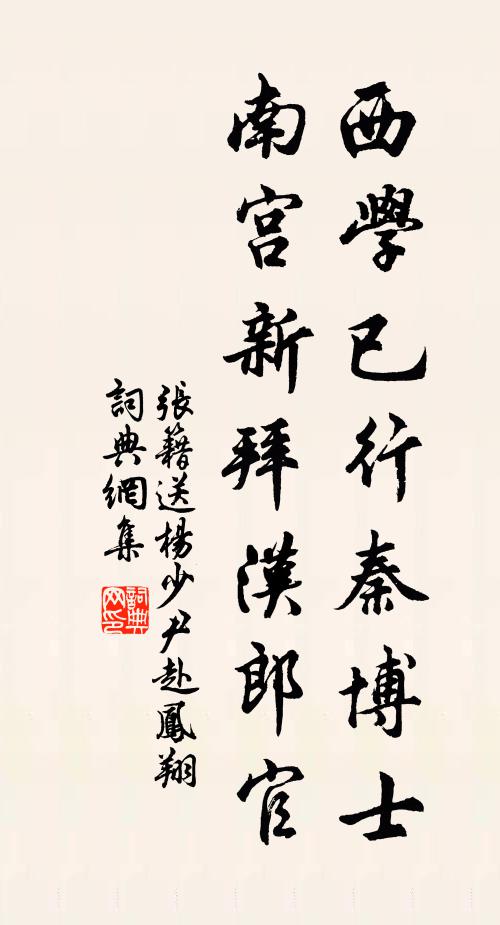 西學已行秦博士
南宮新拜漢郎官
張籍送楊少尹赴鳳翔
詞典網集
詞典网印